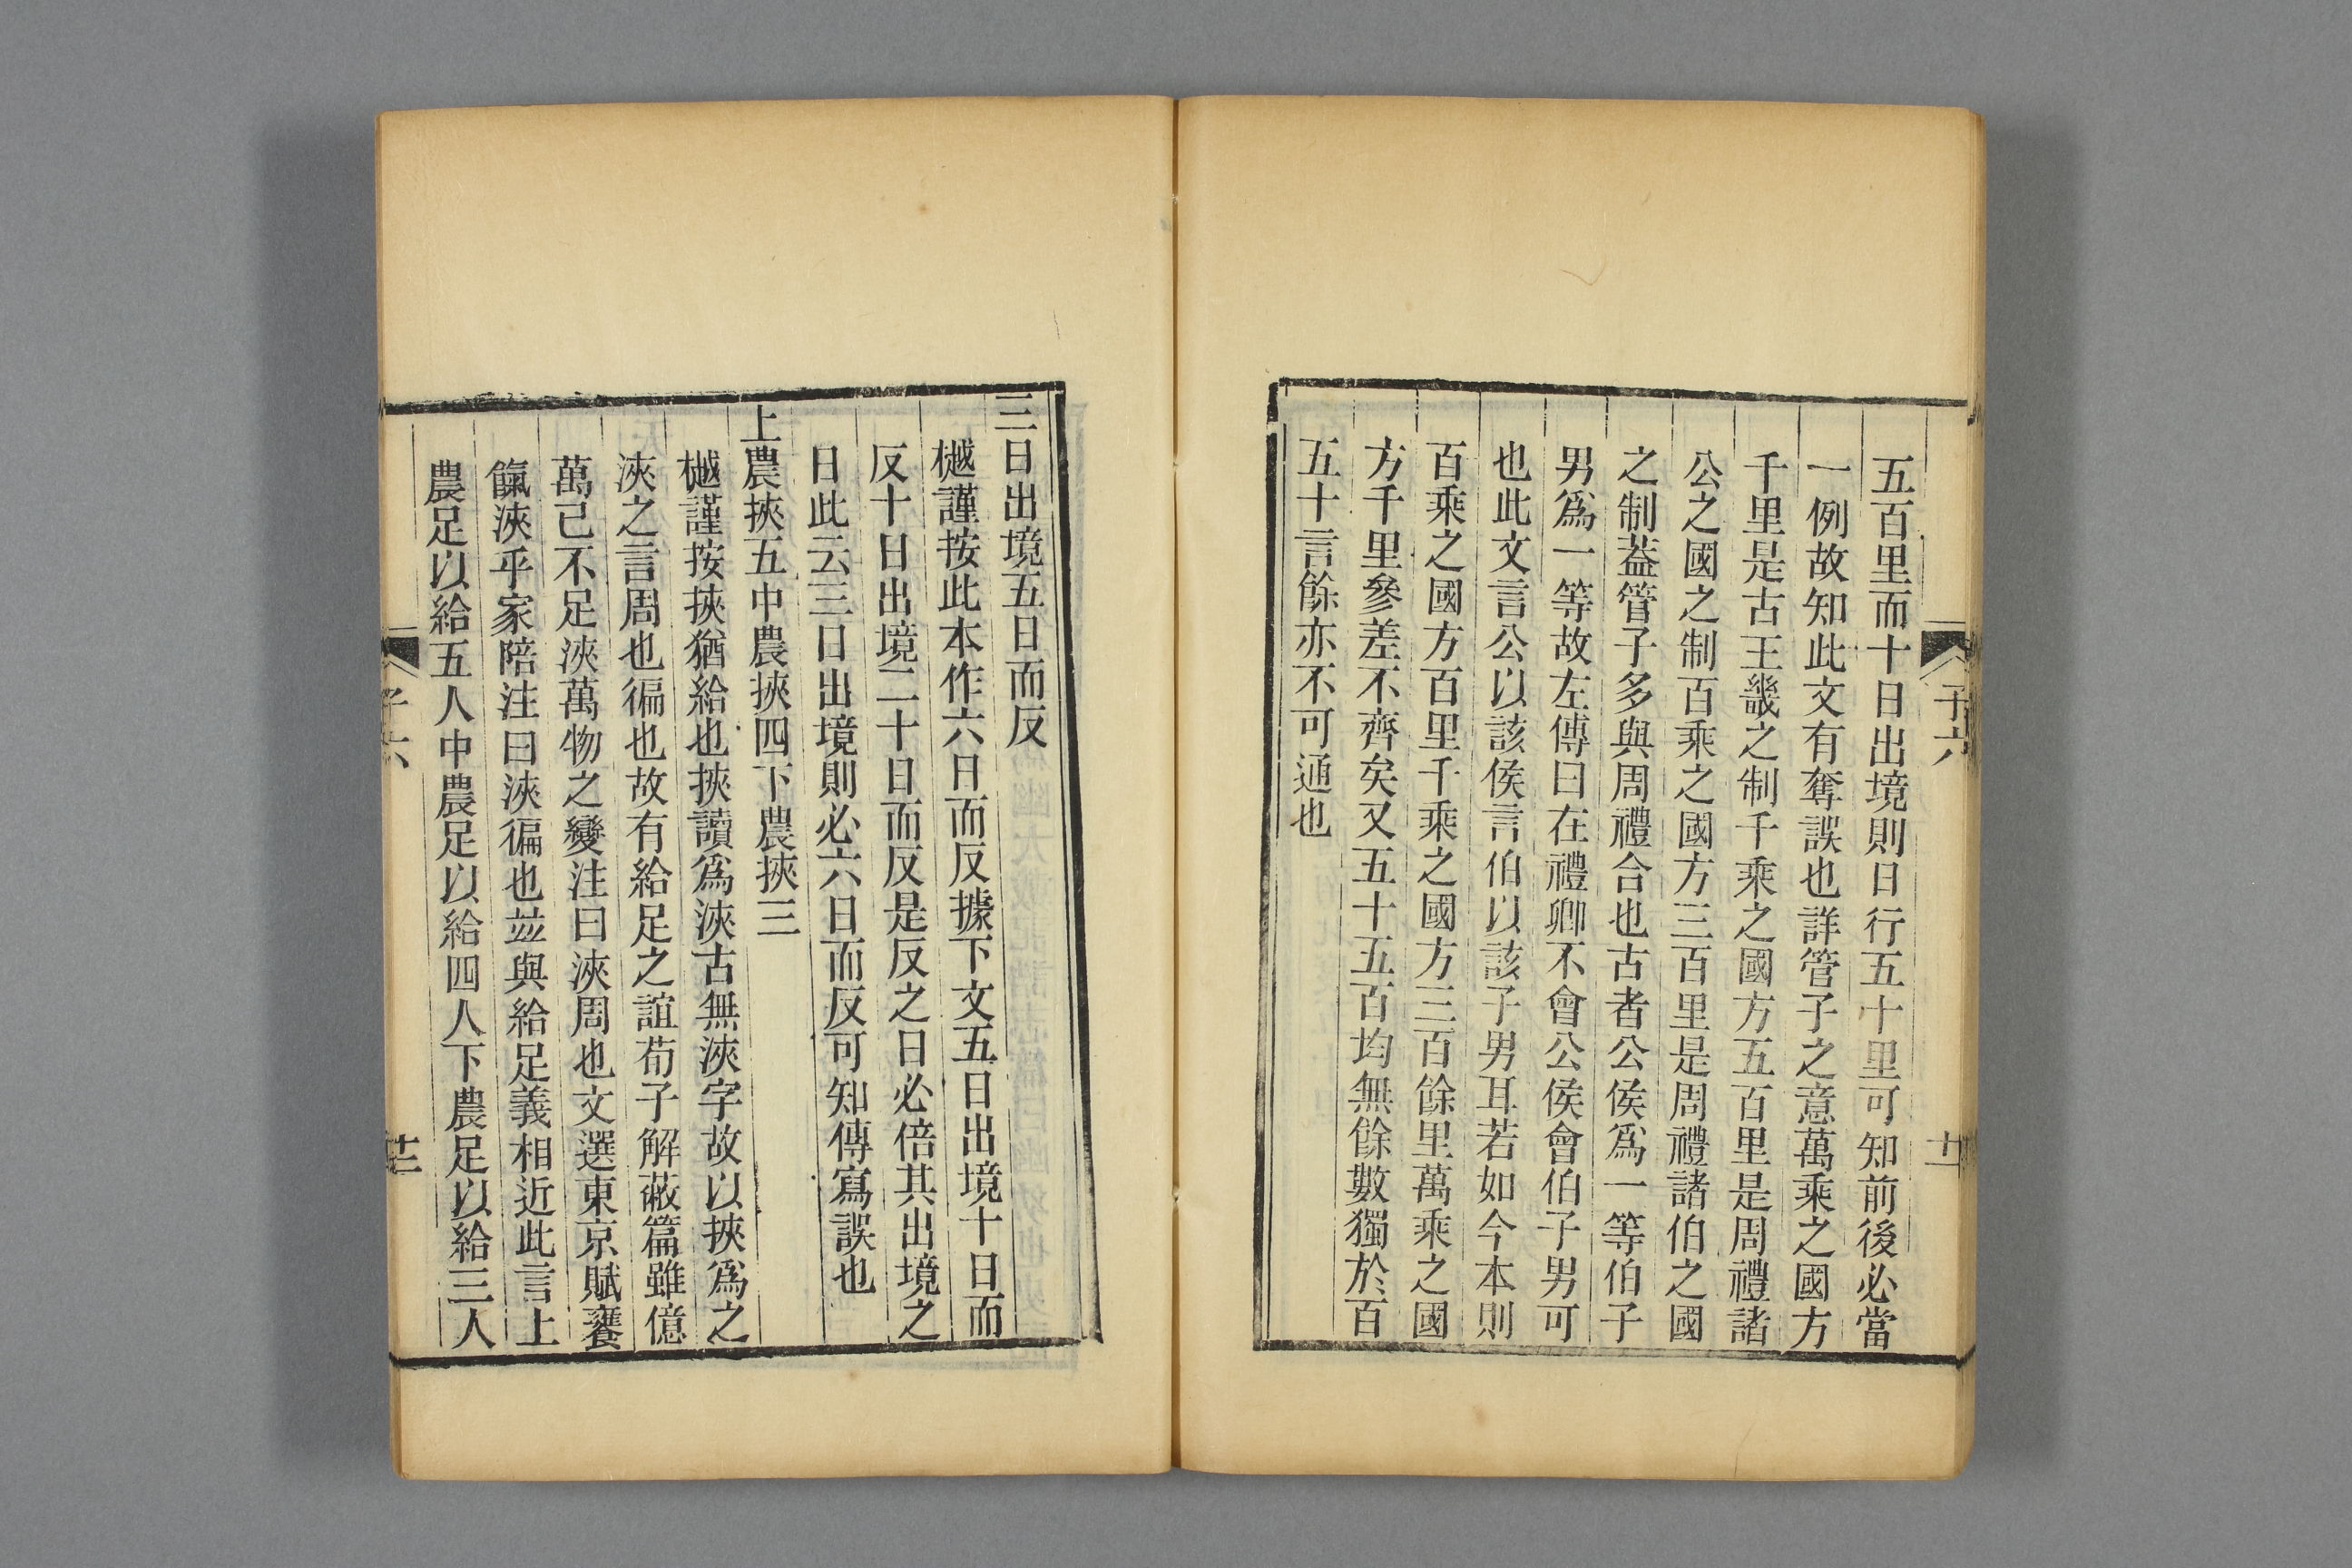 五百里而十日出境則日行五十里可知前後必當
一例故知此文有奪誤也詳管子之意萬乘之國方
千里是古王畿之制千乘之國方五百里是周禮諸
公之國之制百乘之國方三百里是周禮諸伯之國
之制葢管子多與周禮合也古者公侯爲一等伯子
男爲一等故左傳曰在禮卿不會公侯會伯子男可
也此文言公以該侯言伯以該子男耳若如今本則
百乘之國方百里千乘之國方三百餘里萬乘之國
方千里參差不齊矣又五十五百均無餘數獨於百
五十言餘亦不可通也
子六
三日出境五日而反
樾謹按此本作六日而反據下文五日出境十日而
反十日出境二十日而反是反之日必倍其出境之
日此云三日出境則必六日而反可知傳寫誤也
上農挾五中農挾四下農挾三
樾謹按挾猶給也挾讀爲浹古無浹字故以挾爲之
浹之言周也徧也故有給足之誼荀子解蔽篇雖億
萬已不足浹萬物之變注曰浹周也文選東京賦饔
餼浹乎家陪注曰浹徧也竝與給足義相近此言上
農足以給五人中農足以給四人下農足以給三人
子六